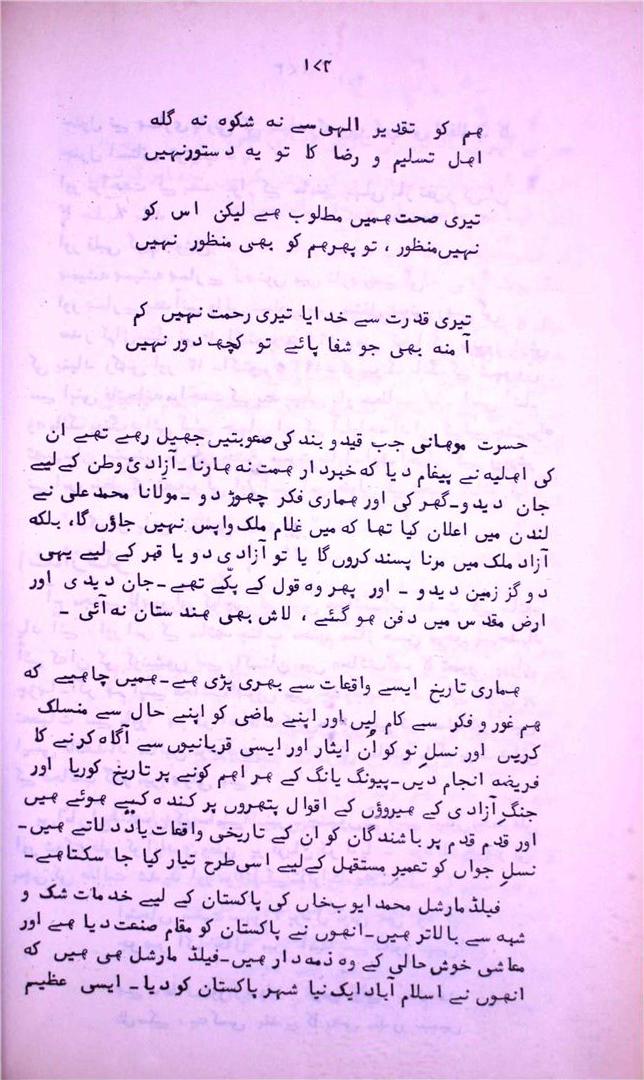 ۱۷۲
ہم کو تقدیر الہی سے نہ شکوہ نہ گلہ
اہل تسلیم و رضا کا تو یہ دستور نہیں
تیری صحت ہمیں مطلوب ہے لیکن اس کو
نہیں منظور ، تو پھر ہم کو بھی منظور نہیں
تیری قدرت سے خدایا تیری رحمت نہیں کم
آمنہ بھی جو شفا پائے تو کچھ دور نہیں
حسرت موہانی جب قید و بند کی صعوبتیں جھیل رہے تھے ان
کی اھلیہ نے پیغام دیا کہ خبردار ہمت نہ ہارنا۔ آزادئ وطن کے لیے
جان دیدو۔ گھر کی اور ہماری فکر چھوڑ دو ۔ مولانا محمد علی نے
لندن میں اعلان کیا تھا کہ میں غلام ملک واپس نہیں جاؤں گا، بلکہ
آزاد ملک میں مرنا پسند کروں گا یا تو آزادی دو یا قبر کے لیے یہی
دو گز زمین دیدو ۔ اور پھر وہ قول کے پکّے تھے۔ جان دیدی اور
ارض مقدس میں دفن ہو گئے ، لاش بھی ہندستان نہ آئی ۔
ہماری تاریخ ایسے واقعات سے بھری پڑی ہے۔ ہمیں چاہیے کہ
ہم غور و فکر سے کام لیں اور اپنے ماضی کو اپنے حال سے منسلک
کریں اور نسلِ نو کو اُن ایثار اور ایسی قربانیوں سے آگاہ کرنے کا
فریضہ انجام دیں۔ پیونگ یانگ کے ہر اہم کونے پر تاریخ کوریا اور
جنگِ آزادی کے ہیروؤں کے اقوال پتھروں پر کندہ کیے ہوئے ہیں
اور قدم قدم پر باشندگان کو ان کے تاریخی واقعات یاد دلاتے ہیں۔
نسلِ جواں کو تعمیرِ مستقبل کے لیے اسی طرح تیار کیا جا سکتا ہے۔
فیلڈ مارشل محمد ایوب خاں کی پاکستان کے لیے خدمات شک و
شبہ سے بالاتر ہیں۔ انھوں نے پاکستان کو مقام صنعت دیا ہے اور
معاشی خوش حالی کے وہ ذمہ دار ہیں۔ فیلڈ مارشل ہی ہیں کہ
انھوں نے اسلام آباد ایک نیا شہر پاکستان کو دیا۔ ایسی عظیم